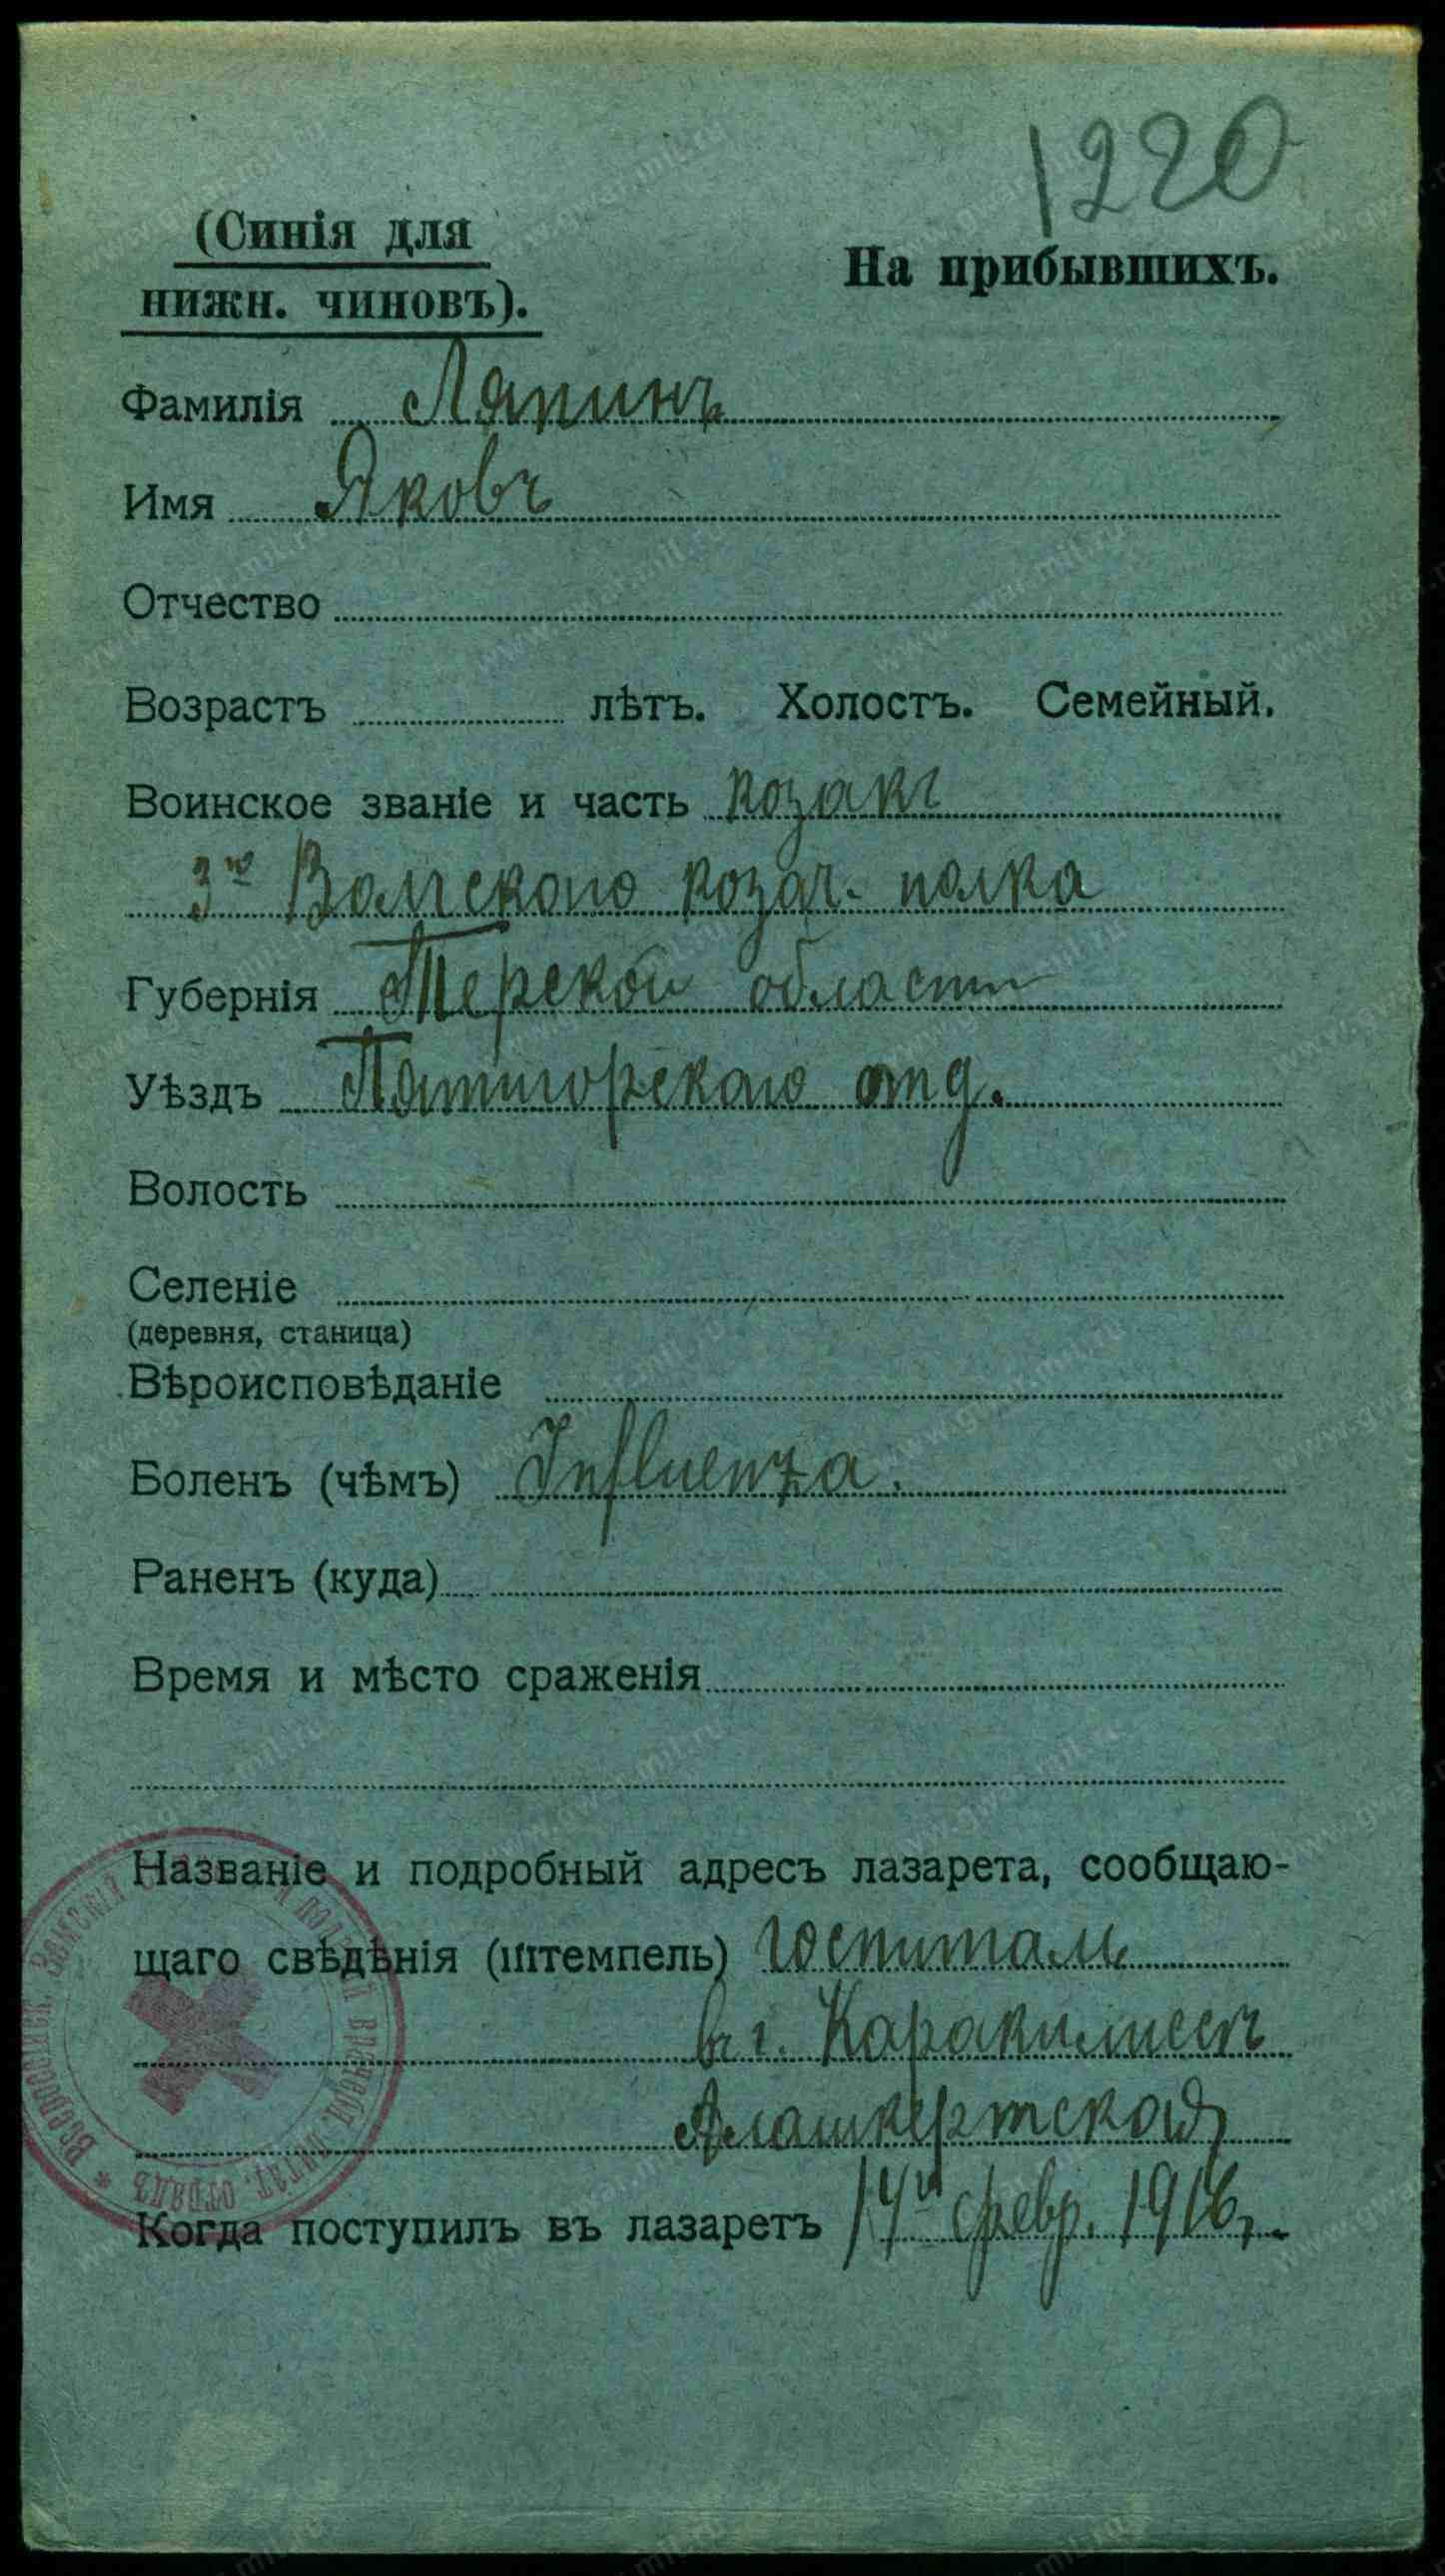 1220
(Синія для
нижн. чиновъ).
На прибывшихъ.
Фамилія Ляпинъ
Имя Яковъ
Отчество
Возрастъ лѣтъ. Холостъ. Семейный.
Воинское званіе и часть козакъ
3го Волгского козач. полка
Губернія Терской области
Уѣздъ Пятигорскаго отд.
Волость
Селеніе
(деревня, станица)
Вѣроисповѣданіе
Боленъ (чѣмъ) Influenza.
Раненъ (куда)
Время и мѣсто сраженія
Названіе и подробный адресъ лазарета, сообщаю-
щаго свѣдѣнія (штемпель) госпиталь
въ г. Каракилиссъ
Алашкертской
Когда поступилъ въ лазаретъ 14го февр. 1916 г.
Всероссійск. Земскій врачебн. питат. отрядъ
www.gwar.mil.ru